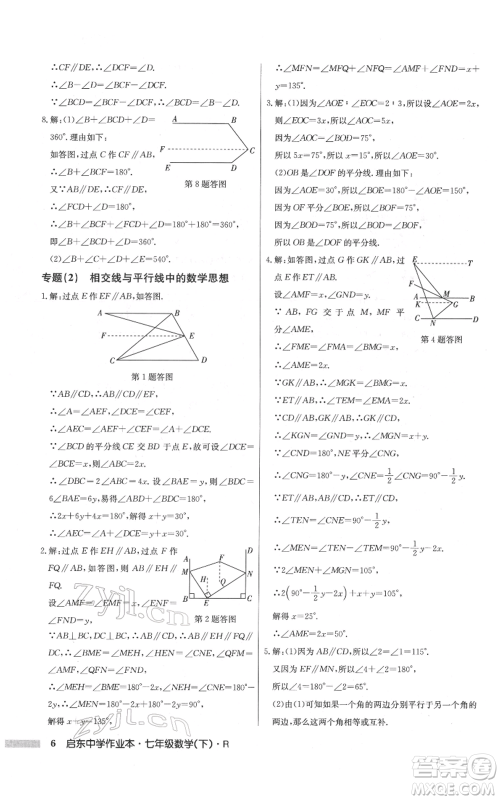 ∴CF∥DE.∴∠DCF=∠D.
∴∠B-∠D=∠BCF-∠DCF.
∴∠B-∠D=∠BCD.
8.解:(1)∠B+∠BCD+∠D=
360°.理由如下:
如答图,过点C作CF∥AB,
∴∠B+∠BCF=180°.
又∵AB∥DE,∴CF∥DE.
∴∠FCD+∠D=180°.
∴∠B+∠BCF+∠FCD+∠D=360°.
∴∠B+∠BCD+∠D=360°.
(2)∠B+∠C+∠D+∠E=540°.
A
B
F
C
E
D
第8题答图
专题(2) 相交线与平行线中的数学思想
1.解:如答图,过点E作EF∥AB,
A
B
F
E
C
D
第1题答图
∵AB∥CD,∴AB∥EF∥CD.
∴∠A=∠AEF,∠DCE=∠CEF.
∴∠AEC=∠AEF+∠CEF=∠A+∠DCE.
∵CE平分∠BCD交BD于点E,∴∠DCE=
∠BCE=x°.
∴∠DBC=2∠ABD=2∠A=2y°.
∵AB∥CD,∴∠ABC+∠BCD=180°,
∴2x+6y=180°.∴x+3y=90°.
∴∠AEC=∠A+∠DCE=x+y=60°.
2.解:过点E作EH∥AB,过点F作
FQ∥AB,如答图.
设∠AME=x,∠MFE=y,
∴∠EMF=2x,∠EFN=2y,
∠FND=y.
∵∠ABD=∠BDC=90°,
∴∠ABD+∠BDC=180°.
∴AB∥CD.
∴AB∥EH∥FQ∥CD.
∴∠MEH=∠AME=x,∠QFN=∠FND=y.
∴∠MEF=180°-∠MFE-∠EMF=180°-2x-y,
∴∠HEF=∠MEF-∠MEH=180°-3x-y,
∠EFQ=∠EFN-∠QFN=y.
∵EH∥FQ,∴∠HEF=∠EFQ.
∴180°-3x-y=y.
解得3x+2y=180°.
A
C
M
F
N
H
Q
B
E
D
第2题答图
∴∠MFN=∠MFQ+∠NFQ=∠AMF+∠FND=3x
+y=135°.
3.解:(1)因为∠AOE∶∠EOC=2∶3,所以设∠AOE
=2x,则∠EOC=3x,所以∠AOC=5x.
因为∠AOC=∠BOD=75°,
所以5x=75°,解得x=15°.
所以2x=30°,所以∠AOE=30°.
(2)OB是∠DOF的平分线.理由如下:
因为∠AOE=30°,
所以∠BOE=180°-∠AOE=150°.
因为OF平分∠BOE,所以∠BOF=75°.
因为∠BOD=75°,所以∠BOD=∠BOF.
所以OB是∠DOF的平分线.
4.解:如答图,过点G作GK∥AB,过点
E作ET∥AB,
设∠AMF=x,∠GND=y.
∵AB,FG交于点M,MF平分
∠AME,
∴∠FME=∠FMA=∠BMG=x.
∴∠AME=2x.
∵GK∥AB,∴∠MGK=∠BMG=x.
∵ET∥AB,∴∠TEM=∠EMA=2x.
∵CD∥AB,GK∥AB,∴GK∥CD.
∴∠KGN=∠GND=y.
∴∠MGN=x+y.
∵∠CND=180°,NE平分∠CNG,
∴∠CNG=180°-y,∠CNE=1/2∠CNG=90°-1/2y.
∵ET∥AB,AB∥CD,∴ET∥CD.
∴∠TEN=∠CNE=90°-1/2y.
∴∠MEN=∠TEN-∠TEM=90°-1/2y-2x.
∵2∠MEN+∠MGN=105°,
∴2(90°-1/2y-2x)+x+y=105°.
解得x=25°.
∴∠AME=2x=50°.
5.解:(1)因为AB∥CD,所以∠1=∠2=115°.
又因为EF∥MN,所以∠2+∠4=180°,
所以∠4=180°-∠2=65°.
(2)如果一个角的两边分别平行于另一个角的
两边,那么这两个角相等或互补.
第4题答图
6 启东中学作业本·七年级数学(下)·R
zyjl.cn
zyjl.cn
答案圈